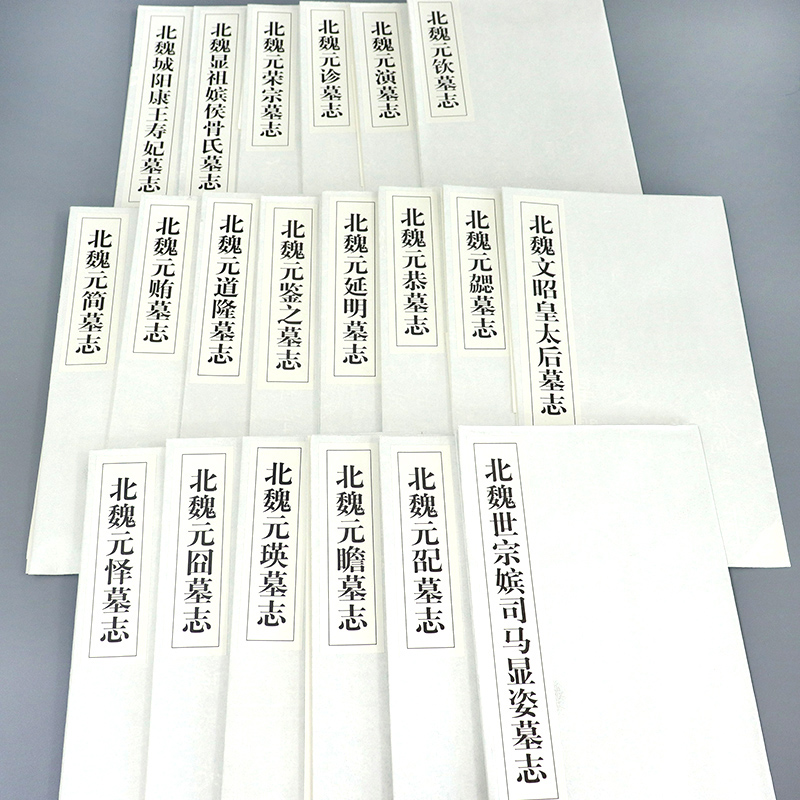 北魏城阳康王寿妃墓志
北魏显祖嫔侯骨氏墓志
北魏元荣宗墓志
北魏元诊墓志
北魏元演墓志
北魏元钦墓志
北魏元简墓志
北魏元贿墓志
北魏元道隆墓志
北魏元鉴之墓志
北魏元延明墓志
北魏元恭墓志
北魏元勰墓志
北魏文昭皇太后墓志
北魏元怿墓志
北魏元囧墓志
北魏元瑛墓志
北魏元瞻墓志
北魏元㔻墓志
北魏世宗嫔司马显姿墓志